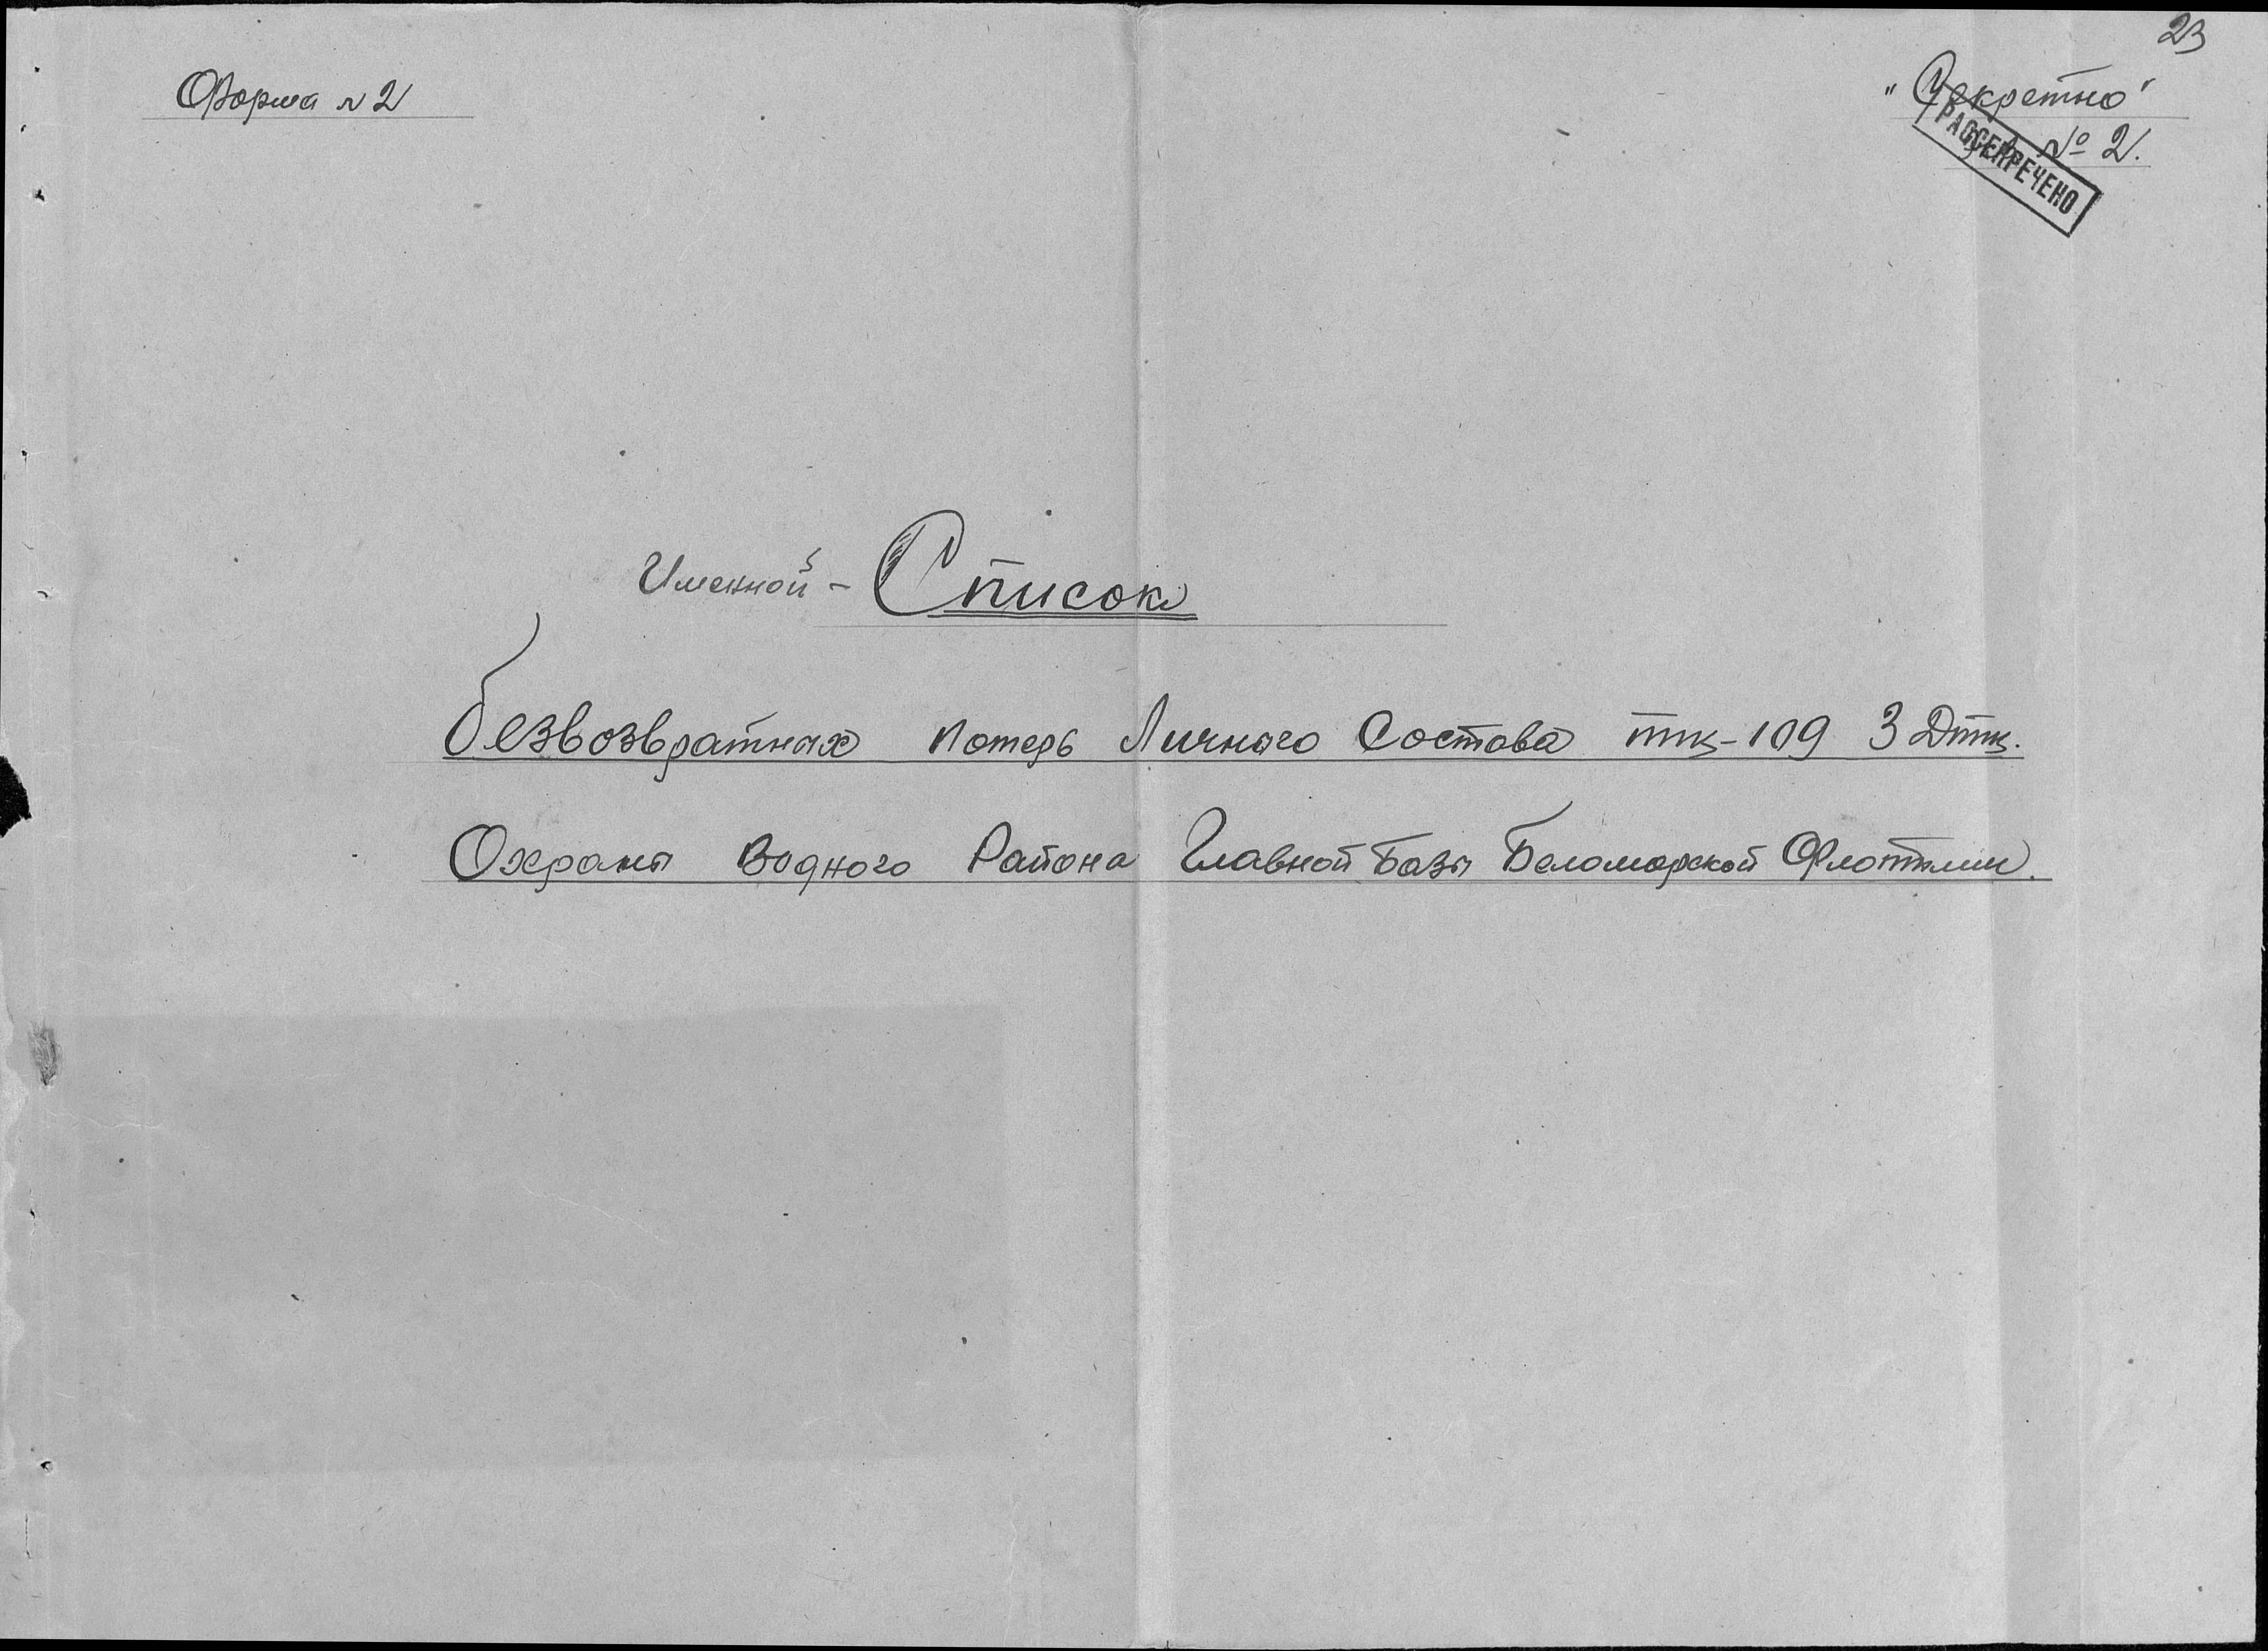 23
Форма № 2
"Секретно"
№ 2.
РАССЕКРЕЧЕНО
Именной - Список
безвозвратных потерь Личного Состава тк-109 3 Дтк.
Охраны Водного Района Главной Базы Беломорской Флотилии.